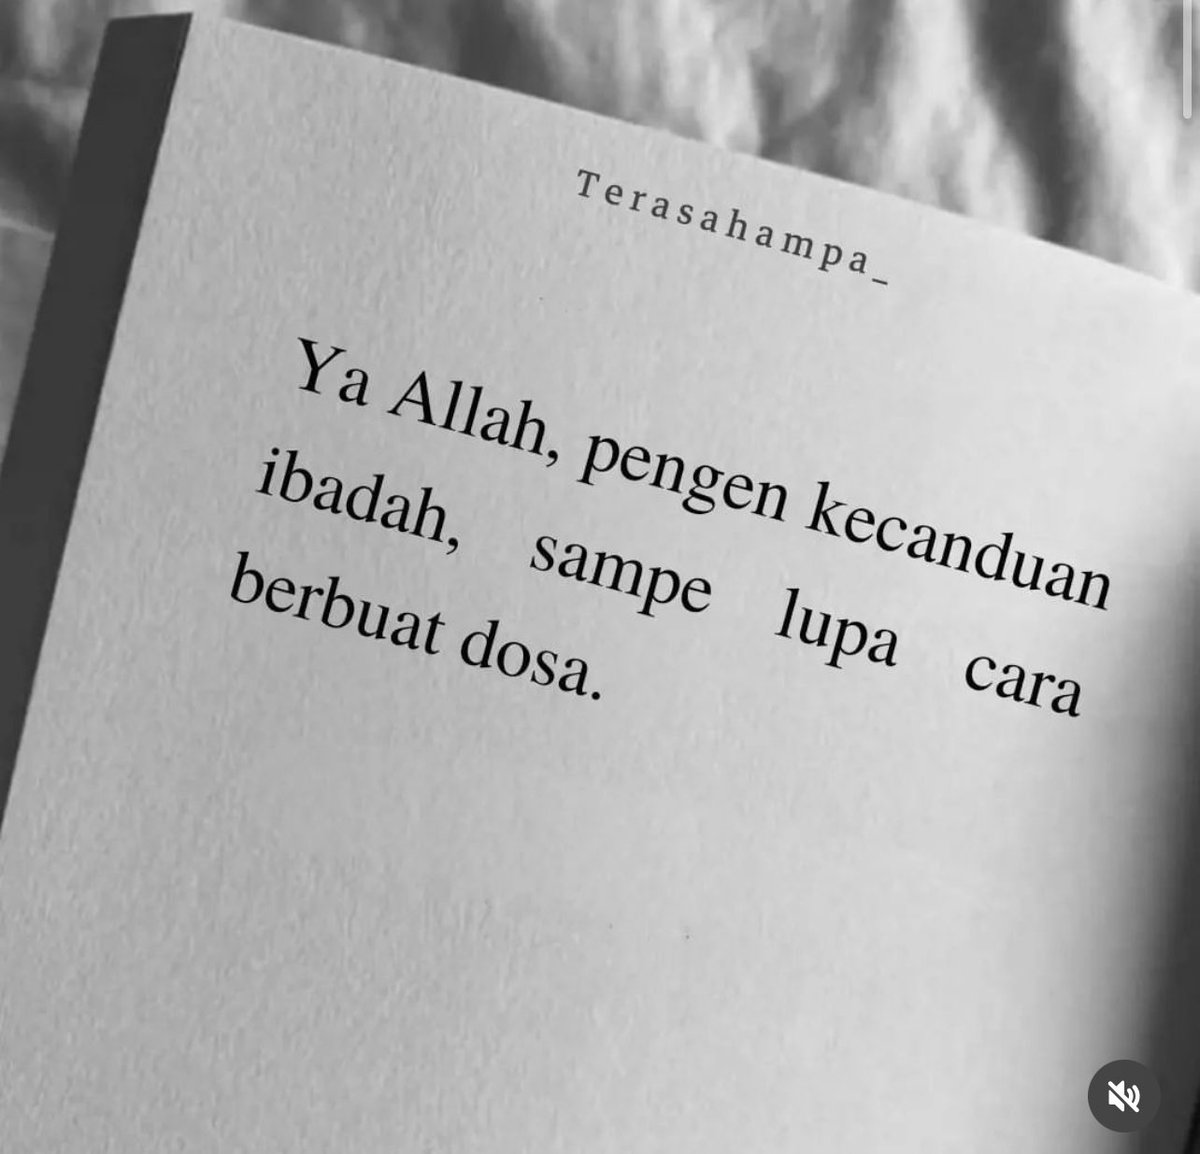 Terasahampa_
Ya Allah, pengen kecanduan
ibadah, sampe lupa cara
berbuat dosa.